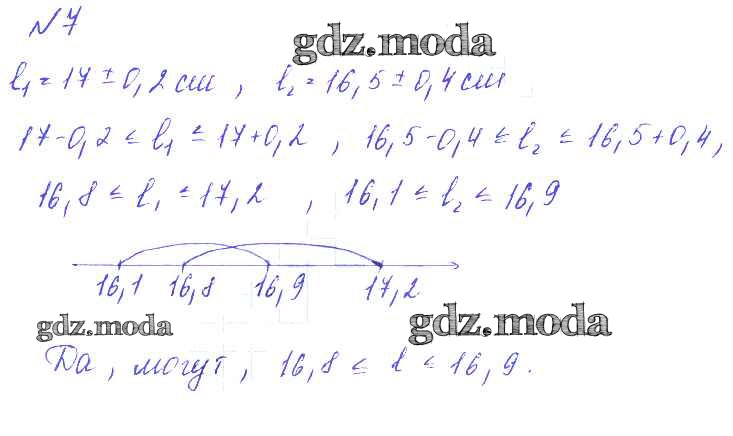 №7
gdz.moda
l₁ = 17 ± 0,2 см, l₂ = 16,5 ± 0,4 см
17-0,2 ≤ l₁ ≤ 17+0,2, 16,5-0,4 ≤ l₂ ≤ 16,5+0,4,
16,8 ≤ l₁ ≤ 17,2, 16,1 ≤ l₂ ≤ 16,9
16,1 16,8 16,9 17,2
gdz.moda gdz.moda
Да, могут, 16,8 ≤ l ≤ 16,9.